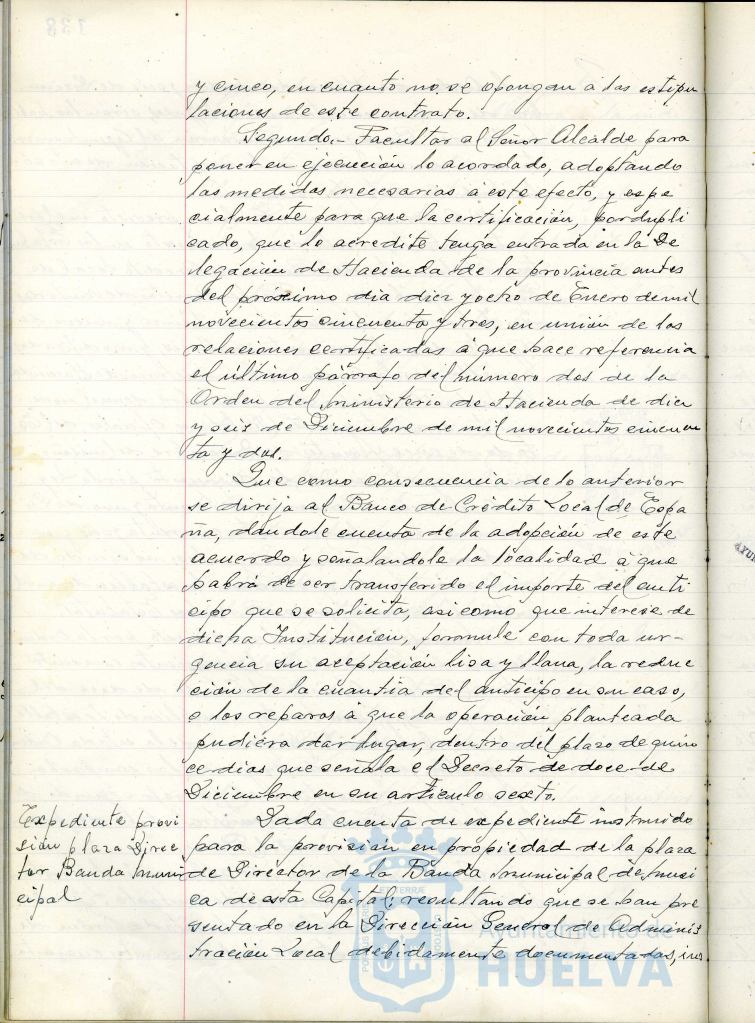 y cinco, en cuanto no se opongan á las estipu
laciones de este contrato.
Segundo.- Facultar al Señor Alcalde para
poner en ejecución lo acordado, adoptando
las medidas necesarias á este efecto, y espe
cialmente para que la certificación, por dupli
cado, que lo acredite tenga entrada en la De
legación de Hacienda de la provincia antes
del próximo dia diez y ocho de Enero de mil
novecientos cincuenta y tres, en unión de las
relaciones certificadas á que hace referencia
el último párrafo del número dos de la
Orden del Ministerio de Hacienda de diez
y seis de Diciembre de mil novecientos cincuen
ta y dos.
Que como consecuencia de lo anterior
se dirija al Banco de Crédito Local de Espa
ña, dandole cuenta de la adopción de este
acuerdo y señalandole la localidad á que
habrá de ser transferido el importe del anti
cipo que se solicita, asi como que interese de
dicha Institución, formule con toda ur-
gencia su aceptación lisa y llana, la reduc
ción de la cuantia del anticipo en su caso,
o los reparos á que la operación planteada
pudiéra dar lugar, dentro del plazo de quin
ce dias que señala el Decreto de doce de
Diciembre en su artículo sexto.
Expediente provi
sión plaza Direc
tor Banda Muni
cipal
Dada cuenta de expediente instruido
para la provisión en propiedad de la plaza
de Director de la Banda Municipal de músi
ca de esta Capital; resultando que se han pre
sentado en la Dirección General de Adminis
tración Local debidamente documentadas, ins
Ayuntamiento de
HUELVA